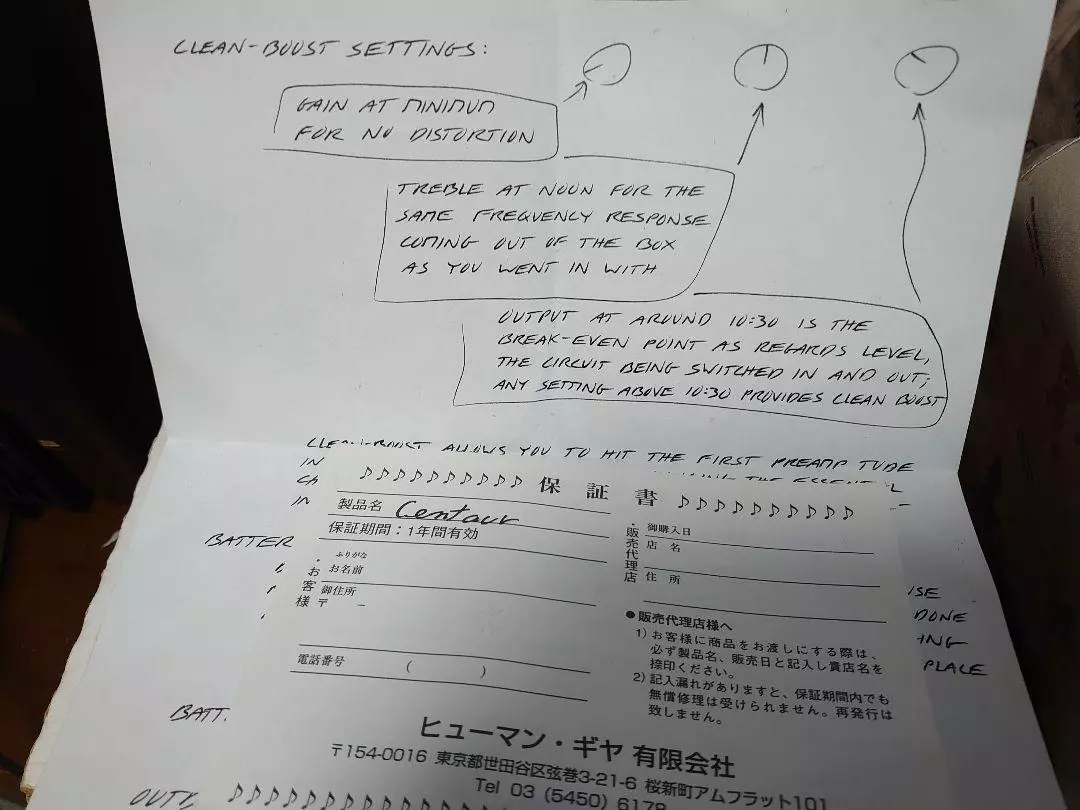 CLEAN-BOOST SETTINGS:
GAIN AT MINIMUM
FOR NO DISTORTION
TREBLE AT NOON FOR THE
SAME FREQUENCY RESPONSE
COMING OUT OF THE BOX
AS YOU WENT IN WITH
OUTPUT AT AROUND 10:30 IS THE
BREAK-EVEN POINT AS REGARDS LEVEL,
THE CIRCUIT BEING SWITCHED IN AND OUT;
ANY SETTING ABOVE 10:30 PROVIDES CLEAN BOOST
CLEAN-BOOST ALLOWS YOU TO HIT THE FIRST PREAMP TUBE
IN
IN
BATTER
ISE
DONE
ING
PLACE
BATT.
♪♪♪♪♪♪♪♪♪♪ 保証書 ♪♪♪♪♪♪♪♪♪♪
製品名 Centaur
保証期間：1年間有効
・お客様
ふりがな
お名前
御住所
〒 －
電話番号 ( )
・販売代理店
御購入日
店名
住所
●販売代理店様へ
1) お客様に商品をお渡しにする際は、
必ず製品名、販売日と記入し貴店名を
捺印ください。
2) 記入漏れがありますと、保証期間内でも
無償修理は受けられません。再発行は
致しません。
ヒューマン・ギヤ 有限会社
〒154-0016 東京都世田谷区弦巻3-21-6 桜新町アムフラット101
Tel 03 (5450) 6178